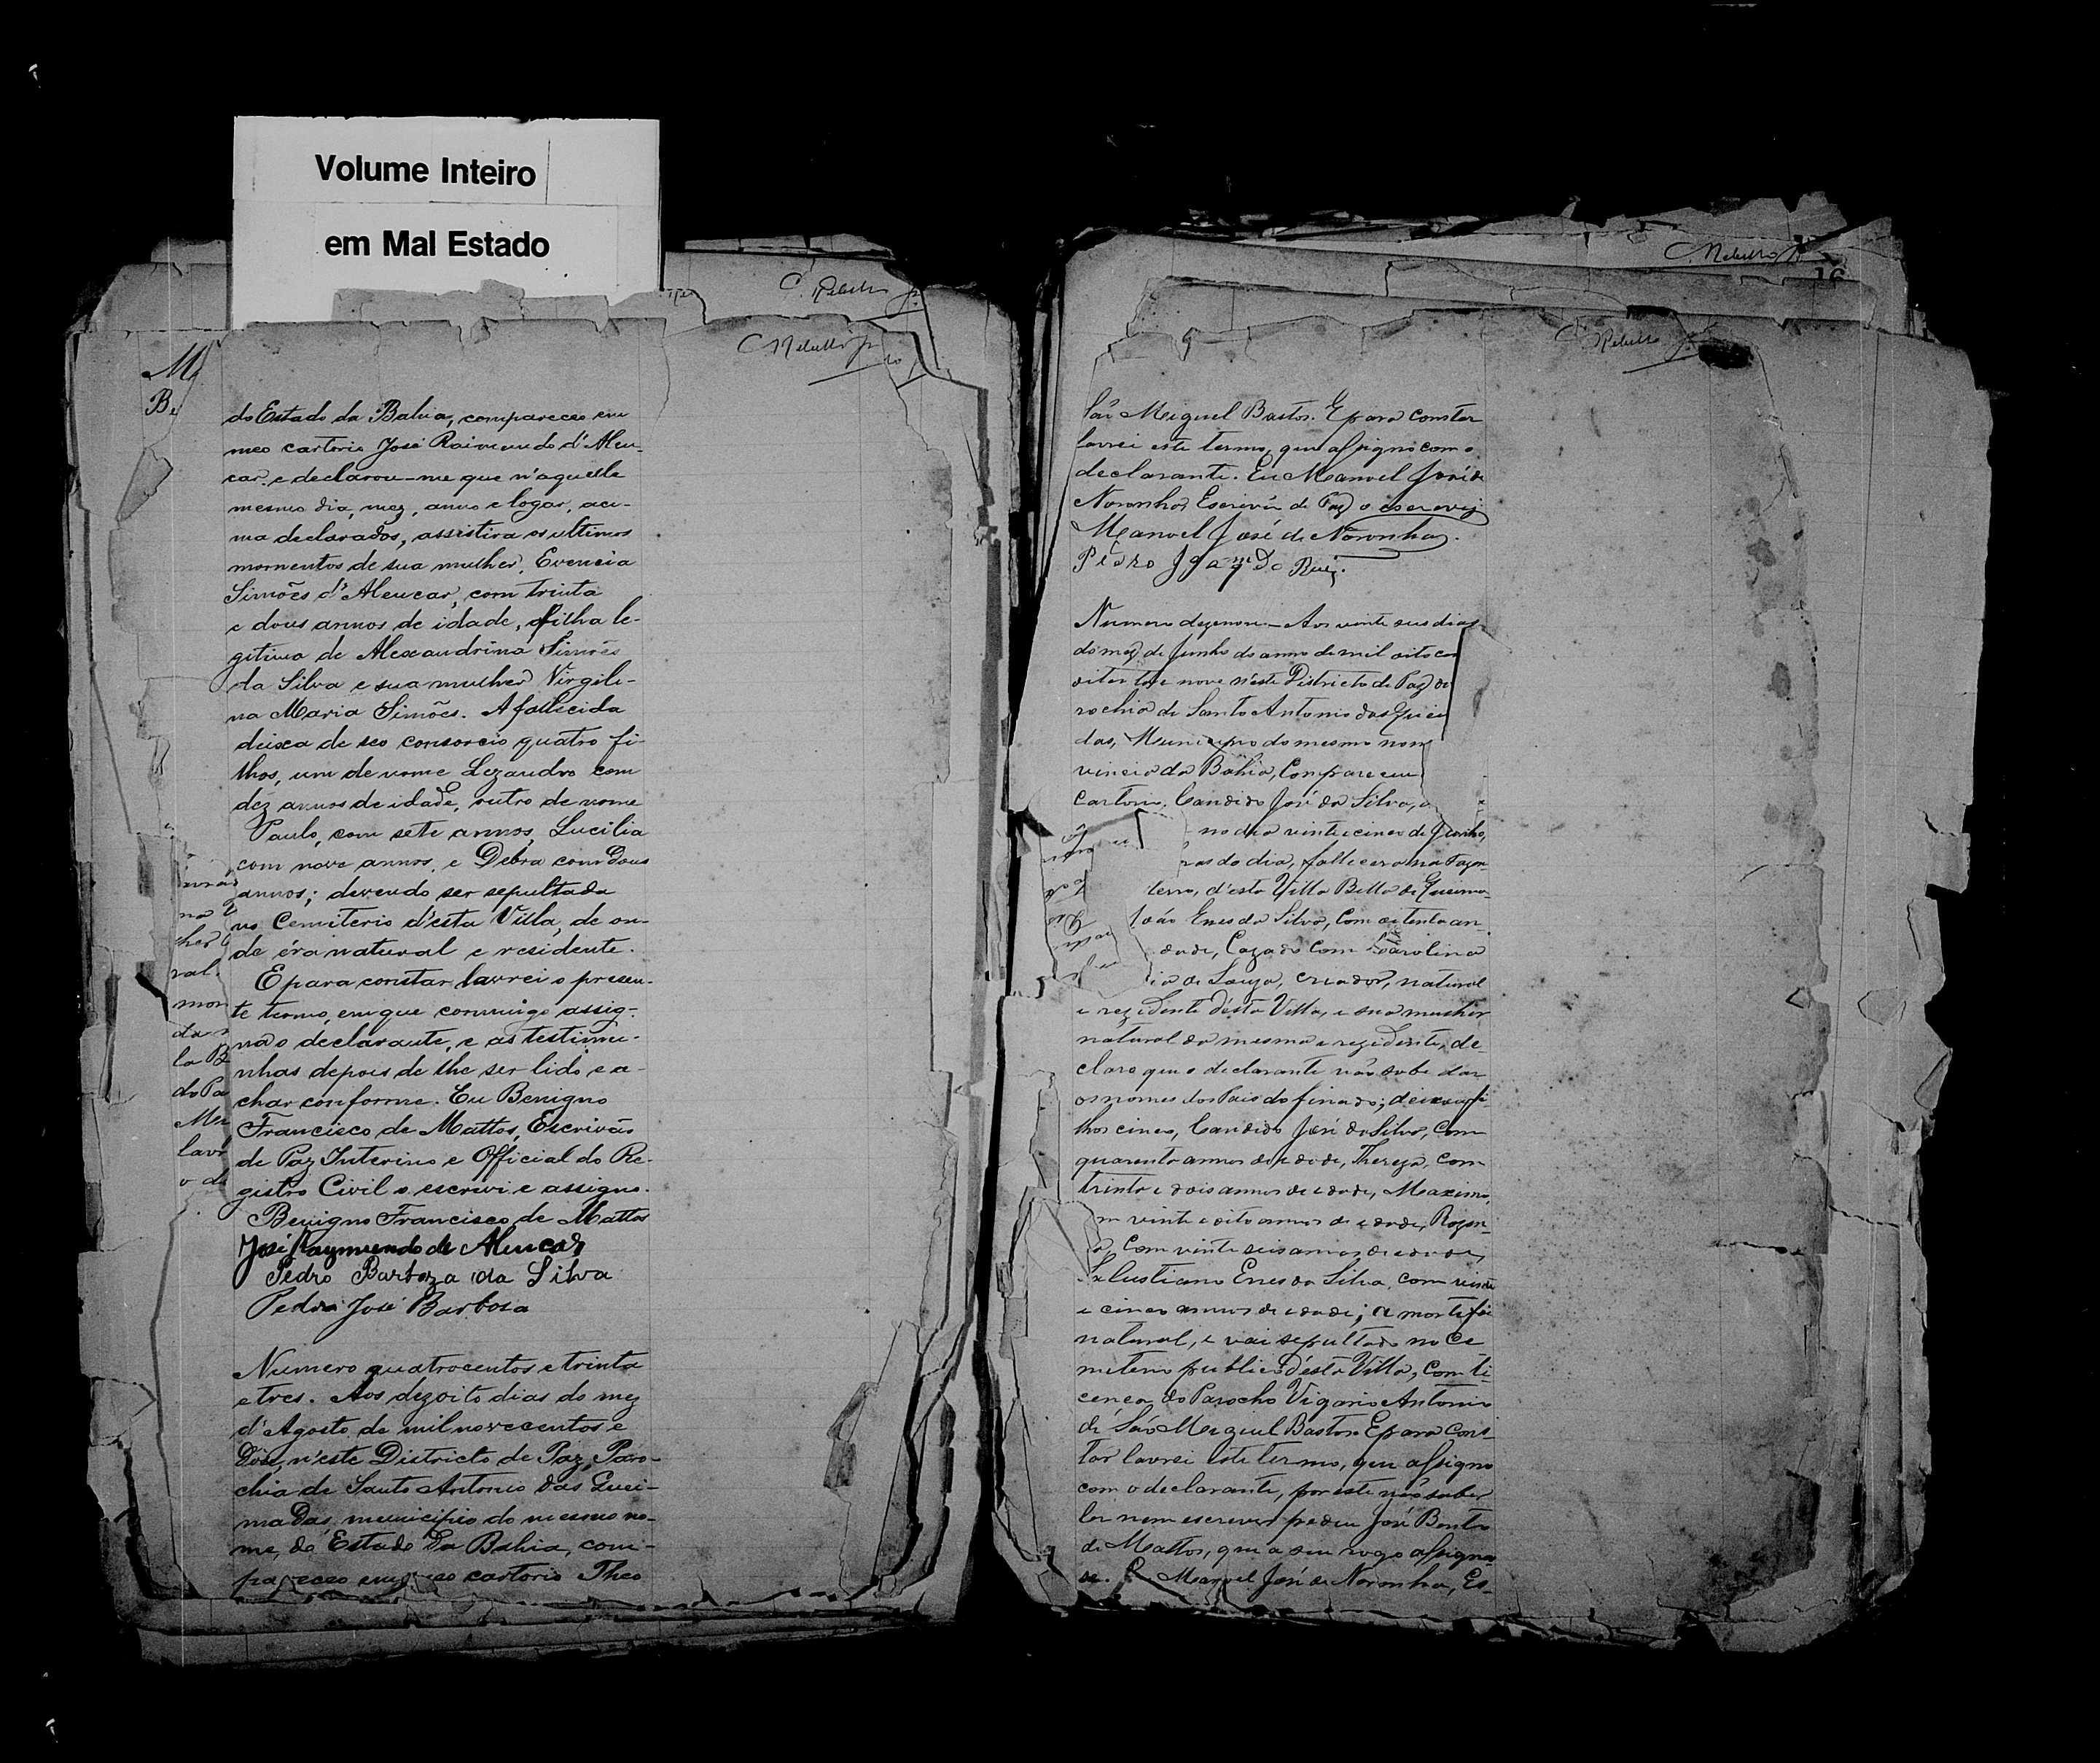 Volume Inteiro
em Mal Estado
C. Rebello Jr
C Rebello Jr
M
Be
do Estado da Bahia, compareceo em
meo cartorio José Raimundo d'Alen-
car, e declarou-me que n'aquelle
mesmo dia, mez, anno e logar, aci-
ma declarados, assistira os ultimos
momentos de sua mulher, Evencia
Simões d'Alencar, com trinta
e dous annos de idade, filha le-
gitima de Alexandrina Simões
da Silva e sua mulher Virgili-
na Maria Simões. A fallecida
deixa de seo consorcio quatro fi-
lhos, um de nome Lezandro com
dez annos de idade, outro de nome
Paulo, com sete annos, Lucilia
com nove annos, e Debra com dous
annos; devendo ser sepultada
no Cemiterio d'esta Villa, de on-
de éra natural e residente.
E para constar lavrei o presen-
te termo, em que commigo assig-
não o declarante, e as testimu-
nhas depois de lhe ser lido e a-
char conforme. Eu Benigno
Francisco de Mattos, Escrivão
de Paz Interino e Official do Re-
gistro Civil o escrevi e assigno.
Benigno Francisco de Mattos
José Raymundo de Alencar
Pedro Barboza da Silva
Pedro José Barbosa
Numero quatrocentos e trinta
e tres. Aos dezoito dias do mez
d'Agosto de mil novecentos e
n'este Districto de Paz, Paro-
chia de Santo Antonio das Quei-
madas, municipio do mesmo no-
me, do Estado da Bahia, com-
pareceo em meo cartorio Theo
C. Rebello Jr
16
C. Rebello Jr
São Miguel Bastos. E para constar
lavrei este termo, que assigno com o
declarante. Eu Manoel José de
Noronha, Escrivão de Paz o escrevi
Manoel José de Noronha.
Pedro
Numero dezenove - Aos vinte seis dias
do mez de Junho do anno de mil oito cen
oitenta e nove n'este Districto de Paz da
rochia de Santo Antonio das Quei
das, Municipio do mesmo nom
vincia da Bahia, Compareceu
Cartorio, Candido José da Silva,
no dia vinte e cinco de Junho,
ras do dia, fallecera na Fazen
terra, d'esta Villa Bella de Queima-
João Enes da Silva, com oitenta an-
dade, Cazado com Carolina
ia de Souza, creador, natural
e rezidente desta Villa, e sua mulher
natural da mesma e rezidente, de-
clara que o declarante não sabe dar
os nomes dos Pais do finado; deixou fi-
lhos cinco, Candido José da Silva, com
quarenta annos de idade, Thereza, com
trinta e dois annos de idade, Maximo,
m vinte e oito annos de idade, Rozen-
com vinte seis annos de idade,
Salustiano Enes da Silva, com vinte
e cinco annos de idade; a morte foi
natural, e vai sepultado no Ce
miterio publico d'esta Villa, com li-
cença do Parocho Vigario Antonio
de São Miguel Bastos E para cons-
tar lavrei este termo, que assigno
com o declarante, por este não saber
ler nem escrever pediu José Bento
de Mattos, que a seu rogo assignas
se. E Manoel José de Noronha, Es-